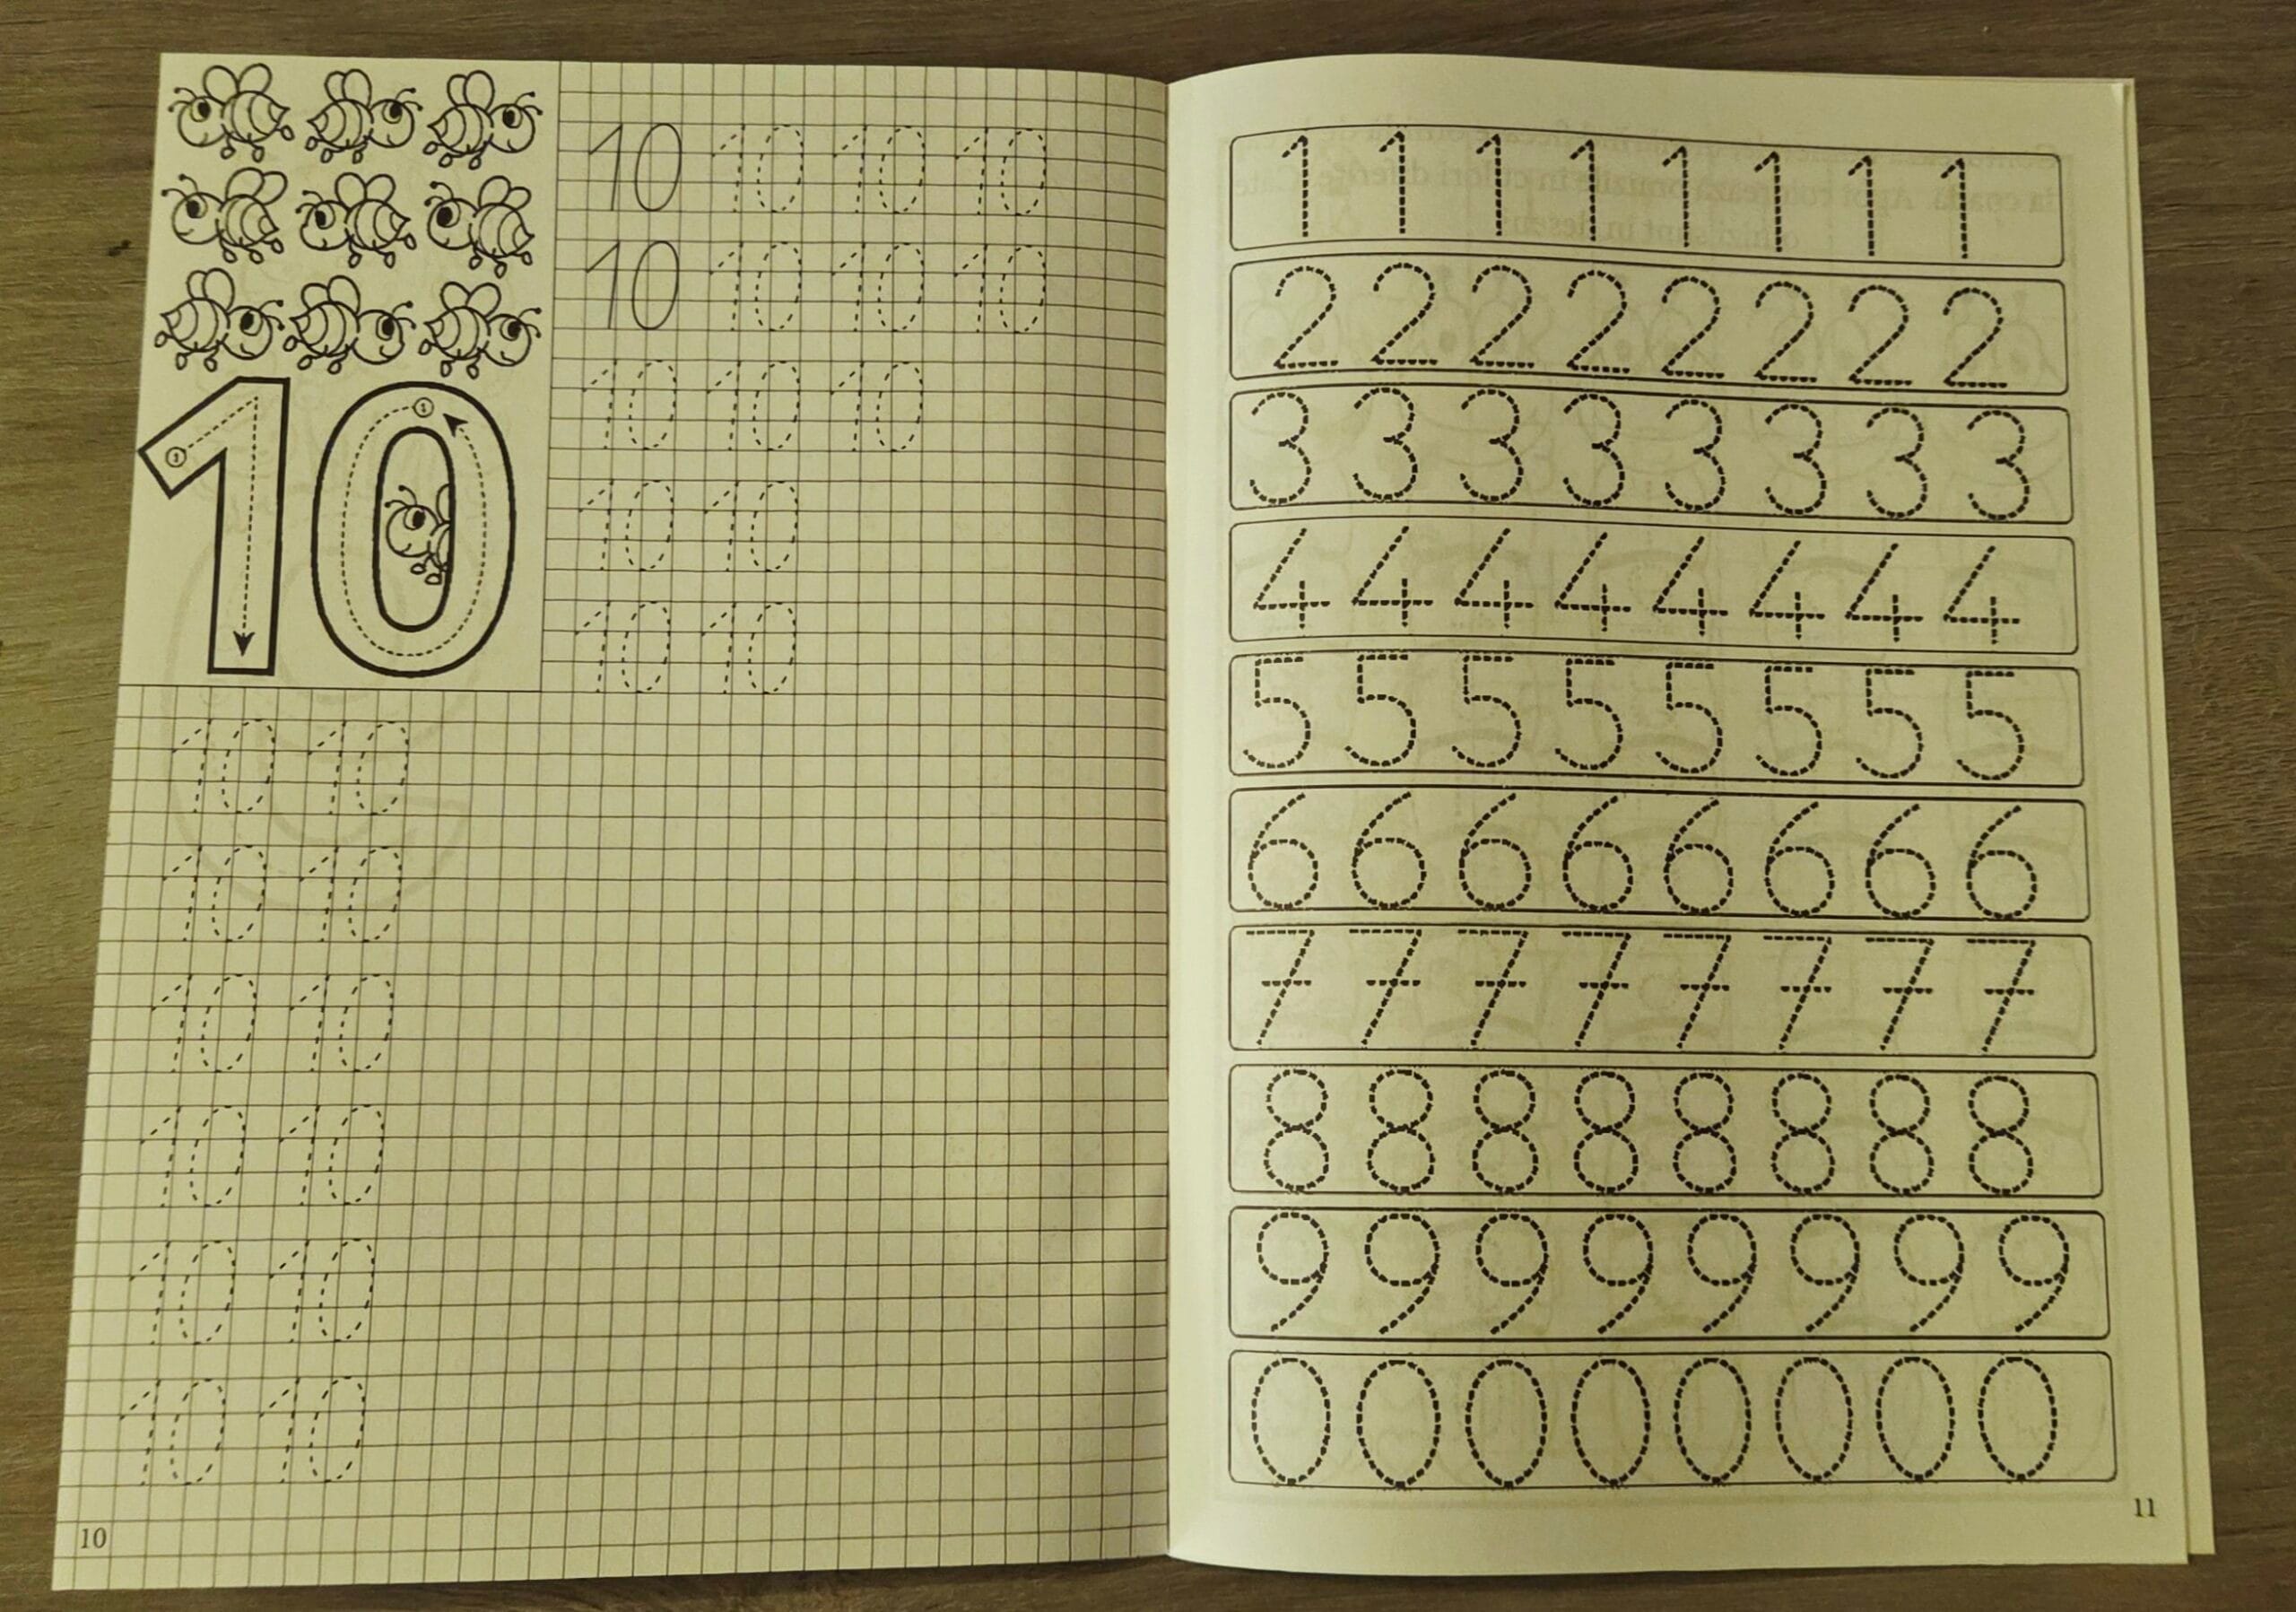 10 10 10 10
10 10 10 10
10 10 10
10 10
10
10 10
10 10
10 10
10 10
10 10
10 10
10 10
10
1 1 1 1 1 1 1 1
2 2 2 2 2 2 2 2
3 3 3 3 3 3 3 3
4 4 4 4 4 4 4 4
5 5 5 5 5 5 5 5
6 6 6 6 6 6 6 6
7 7 7 7 7 7 7 7
8 8 8 8 8 8 8 8
9 9 9 9 9 9 9 9
0 0 0 0 0 0 0 0
11